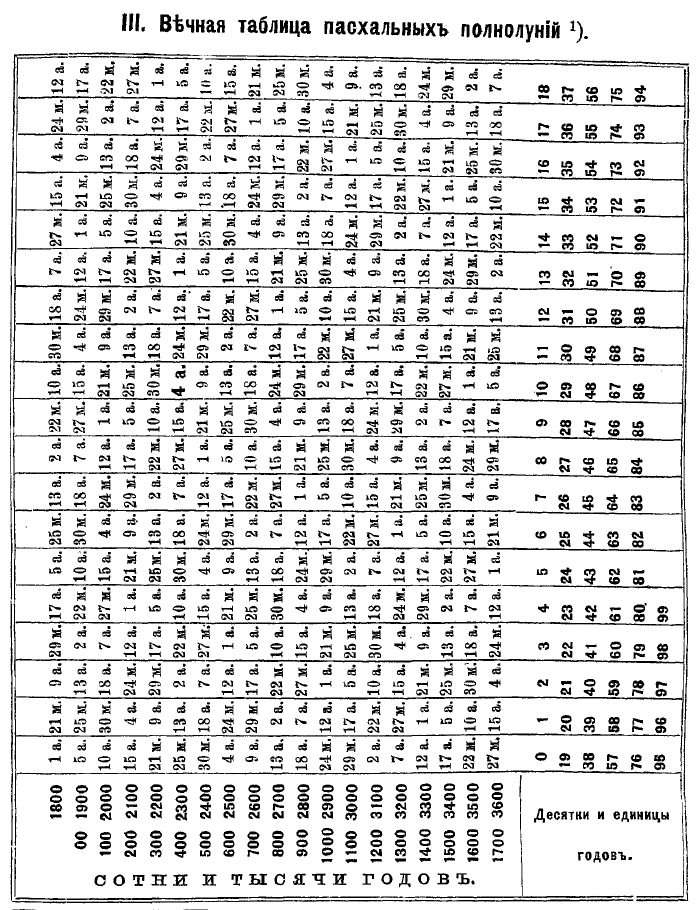 III. Вѣчная таблица пасхальныхъ полнолуній ¹).
СОТНИ И ТЫСЯЧИ ГОДОВЪ.
1800 1 а. 21 м. 9 а. 29 м. 17 а. 5 а. 25 м. 13 а. 2 а. 22 м. 10 а. 30 м. 18 а. 7 а. 27 м. 15 а. 4 а. 24 м. 12 а.
00 1900 5 а. 25 м. 13 а. 2 а. 22 м. 10 а. 30 м. 18 а. 7 а. 27 м. 15 а. 4 а. 24 м. 12 а. 1 а. 21 м. 9 а. 29 м. 17 а.
100 2000 10 а. 30 м. 18 а. 7 а. 27 м. 15 а. 4 а. 24 м. 12 а. 1 а. 21 м. 9 а. 29 м. 17 а. 5 а. 25 м. 13 а. 2 а. 22 м.
200 2100 15 а. 4 а. 24 м. 12 а. 1 а. 21 м. 9 а. 29 м. 17 а. 5 а. 25 м. 13 а. 2 а. 22 м. 10 а. 30 м. 18 а. 7 а. 27 м.
300 2200 21 м. 9 а. 29 м. 17 а. 5 а. 25 м. 13 а. 2 а. 22 м. 10 а. 30 м. 18 а. 7 а. 27 м. 15 а. 4 а. 24 м. 12 а. 1 а.
400 2300 25 м. 13 а. 2 а. 22 м. 10 а. 30 м. 18 а. 7 а. 27 м. 15 а. 4 а. 24 м. 12 а. 1 а. 21 м. 9 а. 29 м. 17 а. 5 а.
500 2400 30 м. 18 а. 7 а. 27 м. 15 а. 4 а. 24 м. 12 а. 1 а. 21 м. 9 а. 29 м. 17 а. 5 а. 25 м. 13 а. 2 а. 22 м. 10 а.
600 2500 4 а. 24 м. 12 а. 1 а. 21 м. 9 а. 29 м. 17 а. 5 а. 25 м. 13 а. 2 а. 22 м. 10 а. 30 м. 18 а. 7 а. 27 м. 15 а.
700 2600 9 а. 29 м. 17 а. 5 а. 25 м. 13 а. 2 а. 22 м. 10 а. 30 м. 18 а. 7 а. 27 м. 15 а. 4 а. 24 м. 12 а. 1 а. 21 м.
800 2700 13 а. 2 а. 22 м. 10 а. 30 м. 18 а. 7 а. 27 м. 15 а. 4 а. 24 м. 12 а. 1 а. 21 м. 9 а. 29 м. 17 а. 5 а. 25 м.
900 2800 18 а. 7 а. 27 м. 15 а. 4 а. 24 м. 12 а. 1 а. 21 м. 9 а. 29 м. 17 а. 5 а. 25 м. 13 а. 2 а. 22 м. 10 а. 30 м.
1000 2900 24 м. 12 а. 1 а. 21 м. 9 а. 29 м. 17 а. 5 а. 25 м. 13 а. 2 а. 22 м. 10 а. 30 м. 18 а. 7 а. 27 м. 15 а. 4 а.
1100 3000 29 м. 17 а. 5 а. 25 м. 13 а. 2 а. 22 м. 10 а. 30 м. 18 а. 7 а. 27 м. 15 а. 4 а. 24 м. 12 а. 1 а. 21 м. 9 а.
1200 3100 2 а. 22 м. 10 а. 30 м. 18 а. 7 а. 27 м. 15 а. 4 а. 24 м. 12 а. 1 а. 21 м. 9 а. 29 м. 17 а. 5 а. 25 м. 13 а.
1300 3200 7 а. 27 м. 15 а. 4 а. 24 м. 12 а. 1 а. 21 м. 9 а. 29 м. 17 а. 5 а. 25 м. 13 а. 2 а. 22 м. 10 а. 30 м. 18 а.
1400 3300 12 а. 1 а. 21 м. 9 а. 29 м. 17 а. 5 а. 25 м. 13 а. 2 а. 22 м. 10 а. 30 м. 18 а. 7 а. 27 м. 15 а. 4 а. 24 м.
1500 3400 17 а. 5 а. 25 м. 13 а. 2 а. 22 м. 10 а. 30 м. 18 а. 7 а. 27 м. 15 а. 4 а. 24 м. 12 а. 1 а. 21 м. 9 а. 29 м.
1600 3500 22 м. 10 а. 30 м. 18 а. 7 а. 27 м. 15 а. 4 а. 24 м. 12 а. 1 а. 21 м. 9 а. 29 м. 17 а. 5 а. 25 м. 13 а. 2 а.
1700 3600 27 м. 15 а. 4 а. 24 м. 12 а. 1 а. 21 м. 9 а. 29 м. 17 а. 5 а. 25 м. 13 а. 2 а. 22 м. 10 а. 30 м. 18 а. 7 а.
Десятки и единицы
годовъ.
0 1 2 3 4 5 6 7 8 9 10 11 12 13 14 15 16 17 18
19 20 21 22 23 24 25 26 27 28 29 30 31 32 33 34 35 36 37
38 39 40 41 42 43 44 45 46 47 48 49 50 51 52 53 54 55 56
57 58 59 60 61 62 63 64 65 66 67 68 69 70 71 72 73 74 75
76 77 78 79 80 81 82 83 84 85 86 87 88 89 90 91 92 93 94
95 96 97 98 99